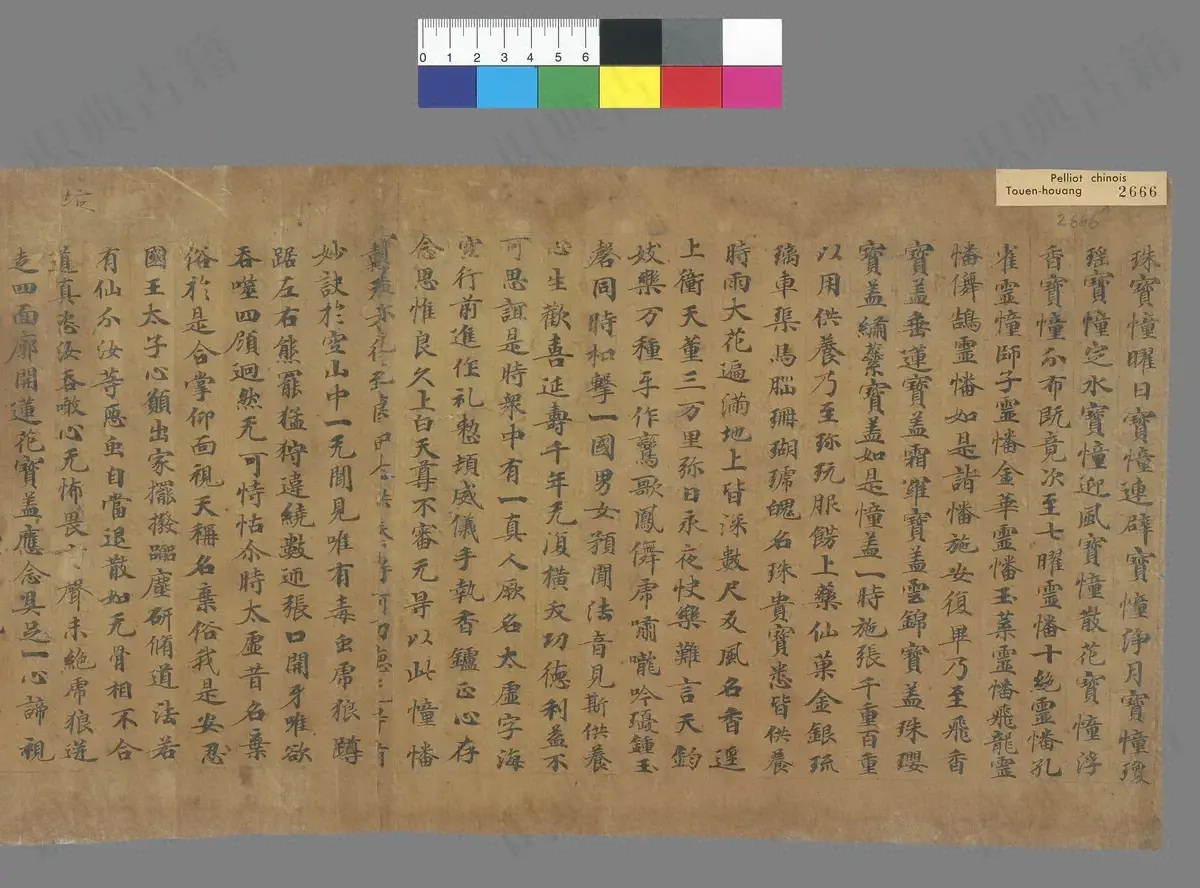 Pelliot chinois
Touen-houang 2666
2666
0 1 2 3 4 5 6
珠寶幢曜日寶幢連璧寶幢淨月寶幢瓊
瑶寶幢定水寶幢迎風寶幢散花寶幢浮
香寶幢尒布既竟次至七曜靈幡十絶靈幡孔
雀靈幢師子靈幡金華靈幡玉葉靈幡飛龍靈
幡儛鵠靈幡如是諸幡施安復畢乃至飛香
寶盖垂蓮寶盖霜羅寶盖雲錦寶盖珠瓔
寶盖繡蘂寶盖如是幢盖一時施張千重百重
以用供養乃至珎玩服餝上藥仙菓金銀琉
璃車渠馬腦珊瑚琥魄名珠貴寶悉皆供養
時雨大花遍滿地上皆深數尺及風名香遥
上衝天薫三万里弥日永夜快樂難言天鈞
妓樂万種手作鸞歌鳳儛虎嘯嚨吟擾鍾玉
磬同時和擊一國男女預聞法音見斯供養
心生歡喜延壽千年无復横夭功徳利益不
可思誼是時衆中有一真人厥名太虚字海
空行前進作礼愁頓威儀手執香鑪正心存
念思惟良久上白天尊不審元㝵以此幢幡
妙訣於空山中一无聞見唯有毒虫虎狼蹲
踞左右熊羆猛狩違繞數迊張口開牙唯欲
吞噬四顧迥然无可恃怙尒時太虚昔名棄
俗於是合掌仰面視天稱名棄俗我是安忍
國王太子心願出家擺撥囂塵研脩道法若
有仙尒汝等惡虫自當退散如无骨相不合
道真恣汝吞噉心无怖畏 聲未絶虎狼迸
走四面廓開蓮花寶盖應念具足一心諦視